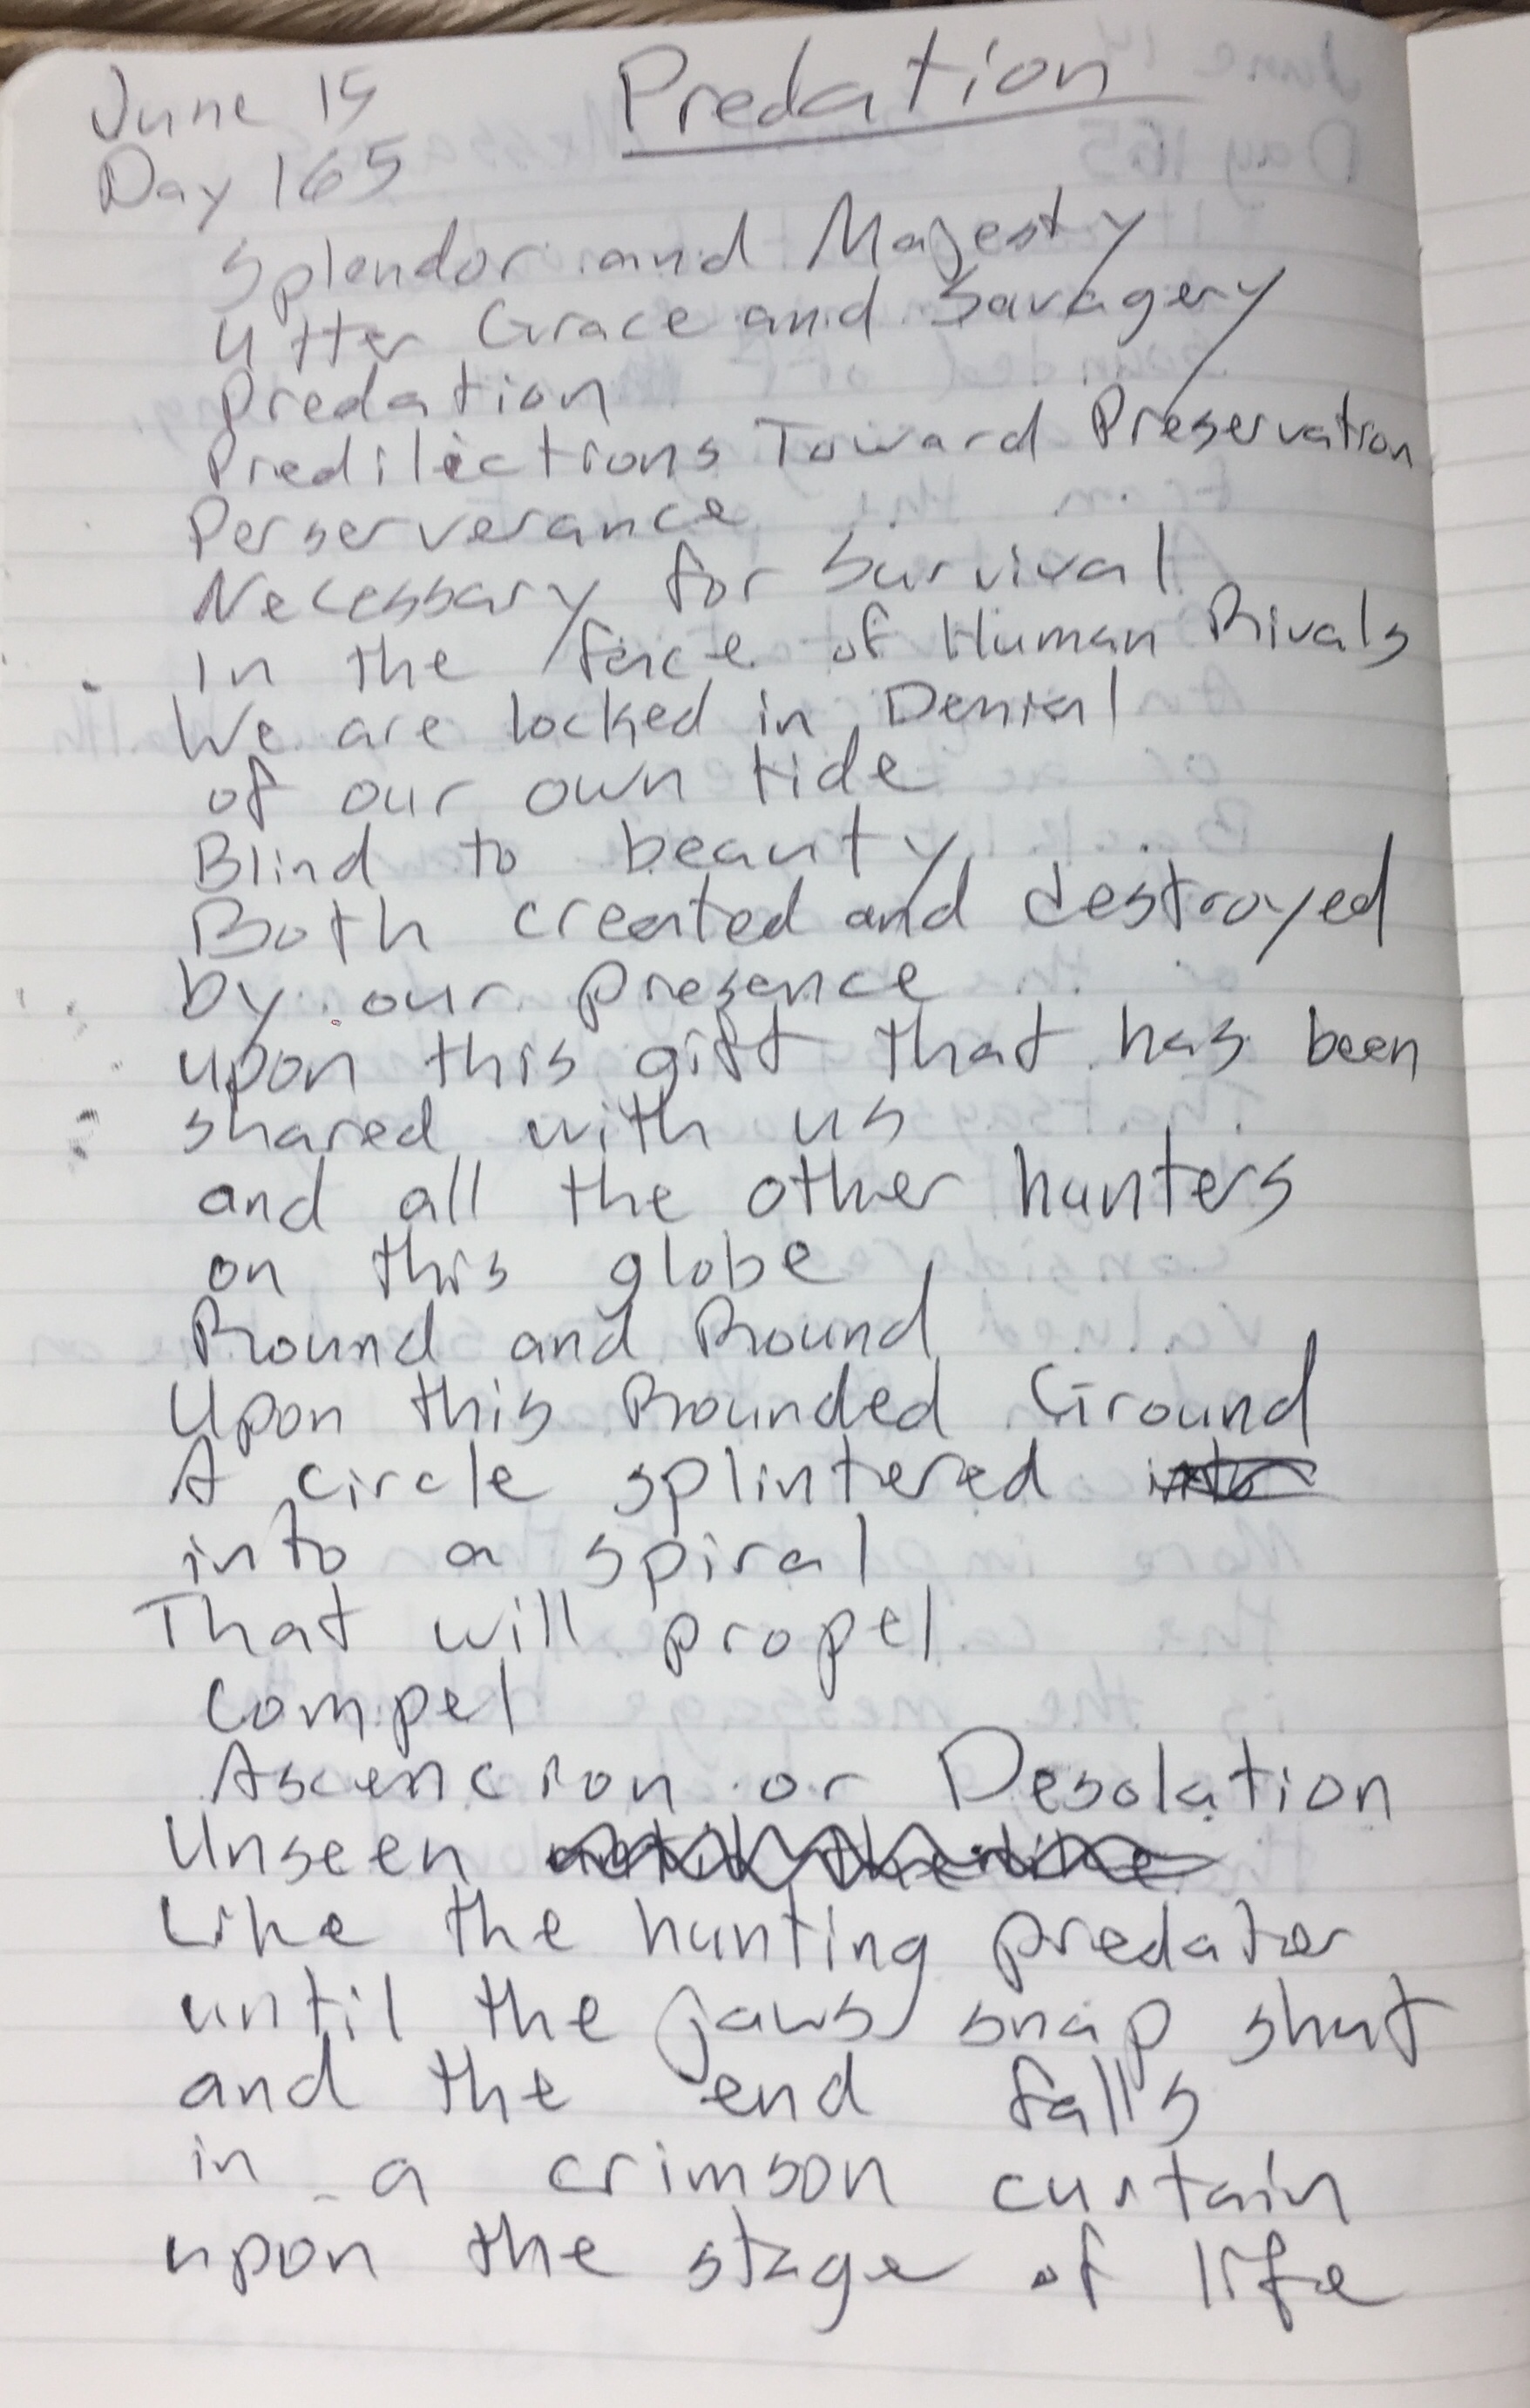 June 15
Predation
Day 165
Splendor and Majesty
Utter Grace and Savagery
Predation
Predilections Toward Preservation
Perserverance
Necessary for Survival
In the face of Human Rivals
We are locked in Denial
of our own tide
Blind to beauty
Both created and destroyed
by our presence
upon this gift that has been
shared with us
and all the other hunters
on this globe
Round and Round
Upon this Rounded Ground
A circle splintered into
into a spiral
That will propel
Compel
Ascencion or Desolation
Unseen
Like the hunting predator
until the jaws snap shut
and the end falls
in a crimson curtain
upon the stage of life